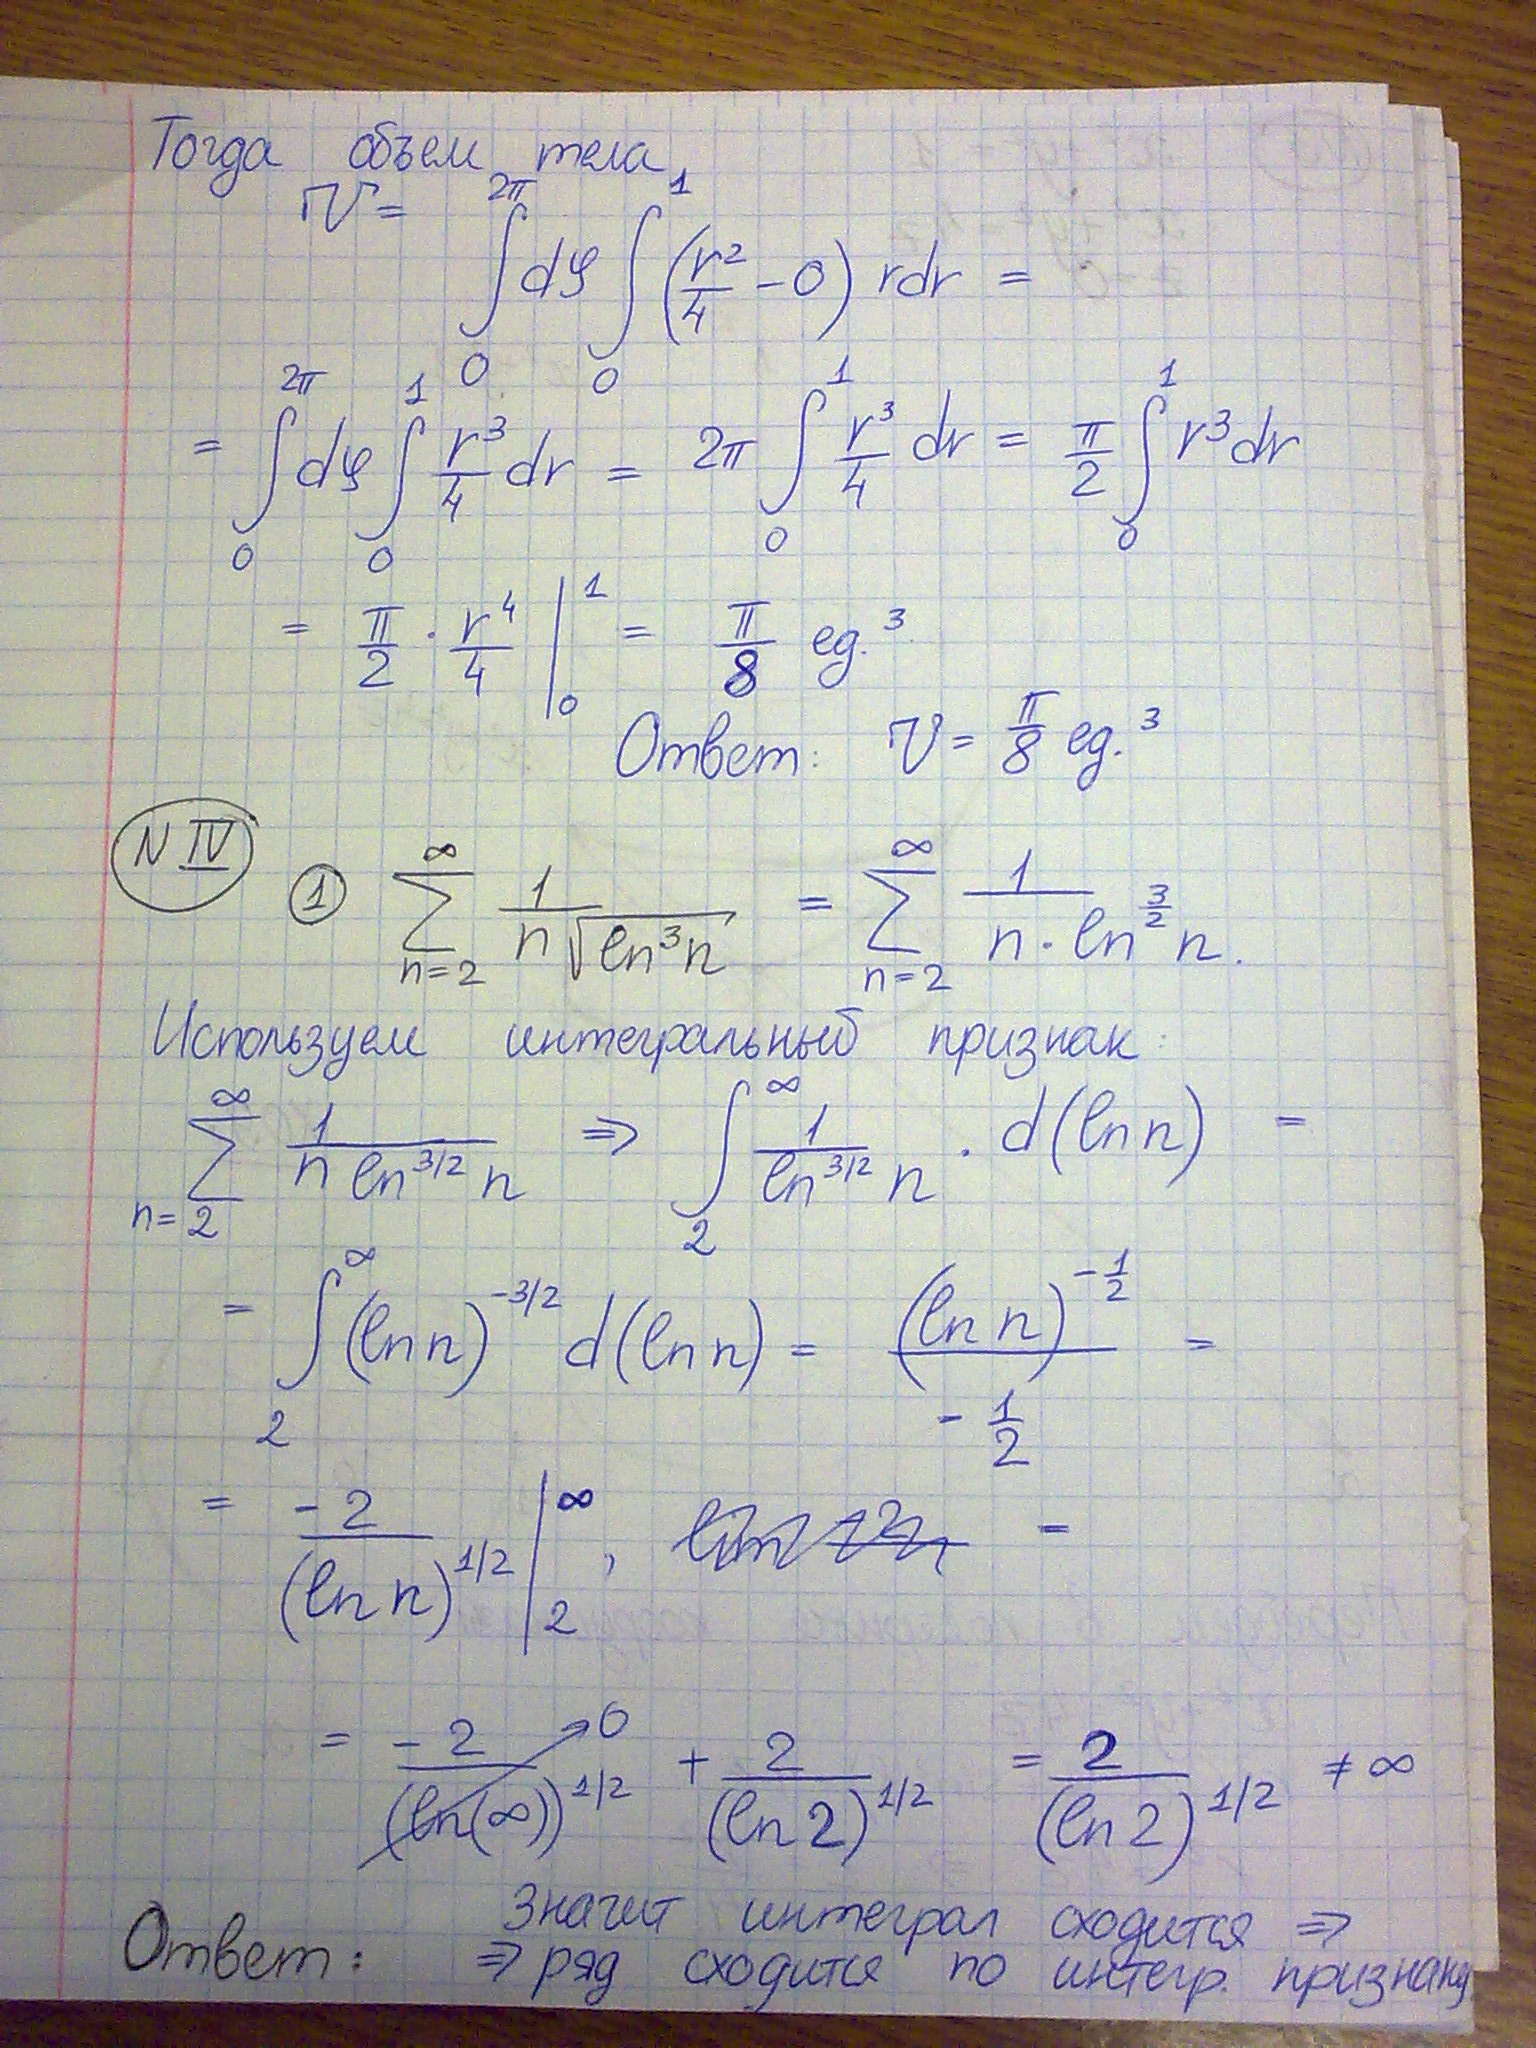 Тогда объем тела
V = ∫₀^{2π} dφ ∫₀^1 (r²/4 − 0) r dr =
= ∫₀^{2π} dφ ∫₀^1 r³/4 dr = 2π ∫₀^1 r³/4 dr = π/2 ∫₀^1 r³ dr
= π/2 · r⁴/4 |₀^1 = π/8 ед.³
Ответ: V = π/8 ед.³
N IV ① ∑_{n=2}^∞ 1/(n√(ln³n)) = ∑_{n=2}^∞ 1/(n · ln^{3/2} n).
Используем интегральный признак:
∑_{n=2}^∞ 1/(n ln^{3/2} n) ⇒ ∫₂^∞ 1/(ln^{3/2} n) · d(ln n) =
= ∫₂^∞ (ln n)^{-3/2} d(ln n) = (ln n)^{-1/2}/(-1/2) =
= -2/(ln n)^{1/2} |₂^∞ , =
= -2/(ln(∞))^{1/2} → 0 + 2/(ln 2)^{1/2} = 2/(ln 2)^{1/2} ≠ ∞
Значит интеграл сходится ⇒
Ответ: ⇒ ряд сходится по интегр. признаку